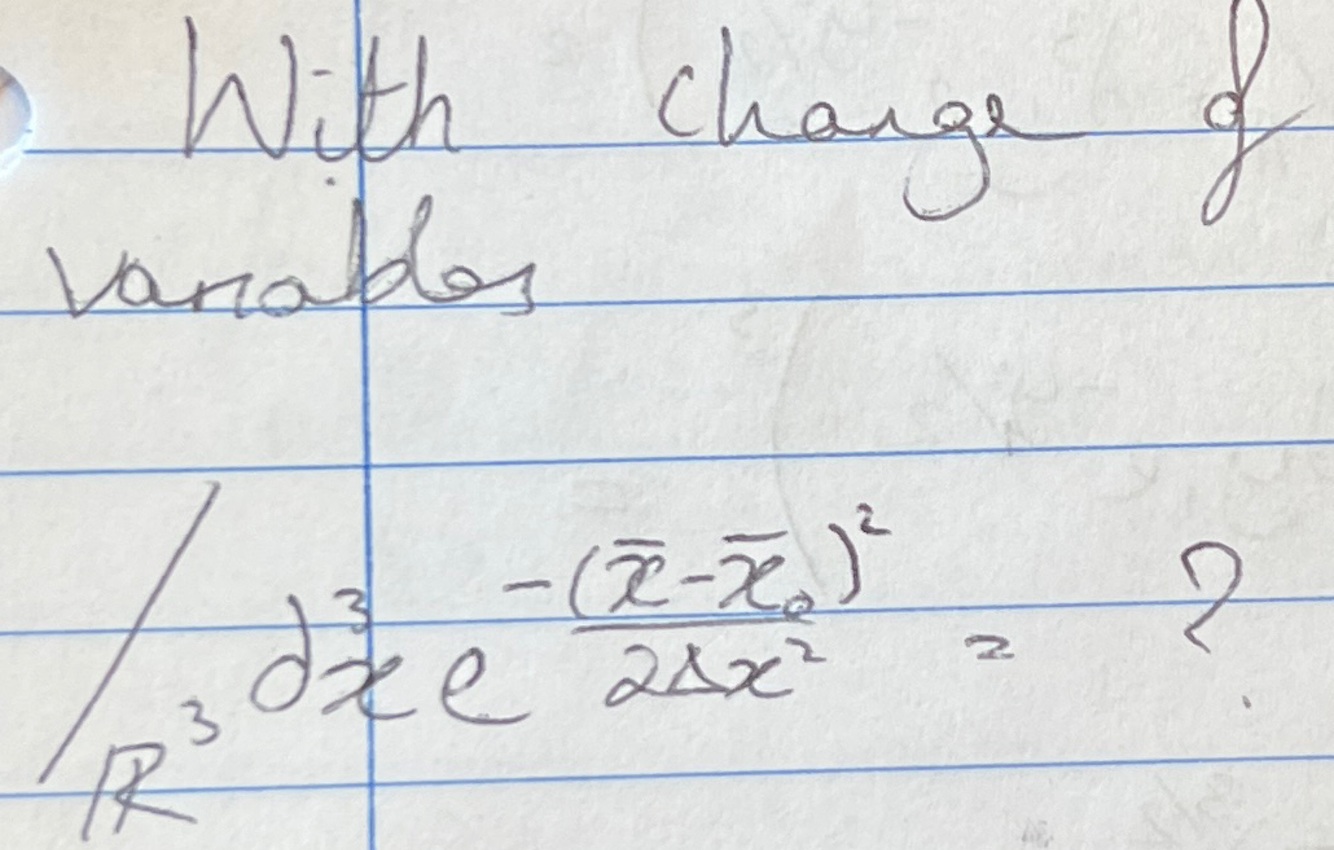 With change of
variables
∫_{ℝ³} d³x e^{-(x̄-x̄₀)²/2Δx²} = ?